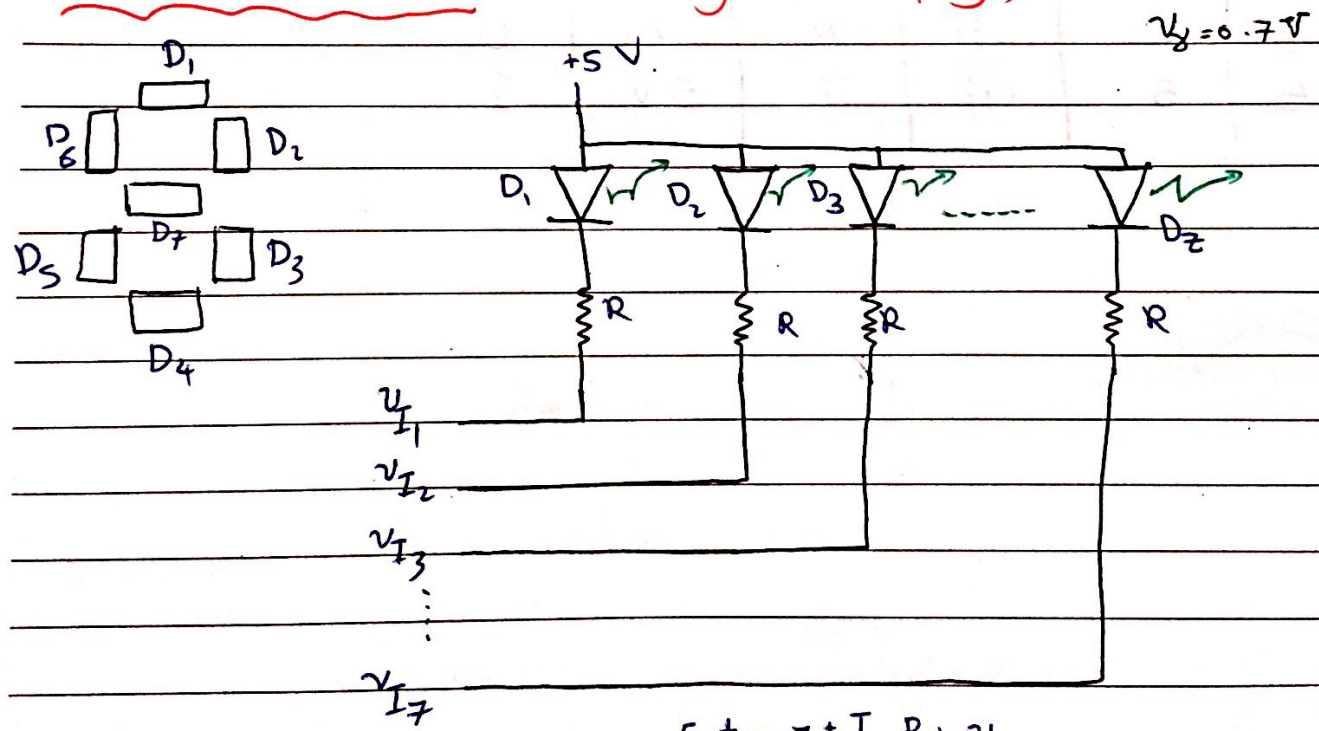 Vγ = 0.7 V
+5 V.
D1
D6
D2
D7
D5
D3
D4
D1
D2
D3
......
Dz
R
R
R
R
vI1
vI2
vI3
vI7